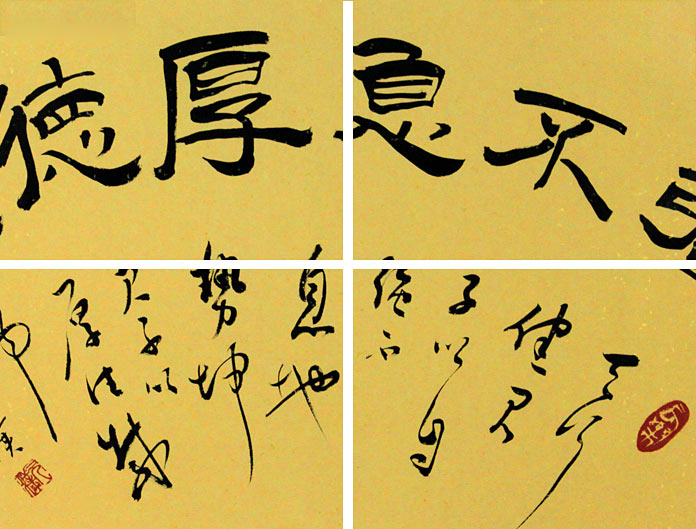 不息厚德
天行
健君
子以自
强不
息地
勢坤
君子以
厚德載
物